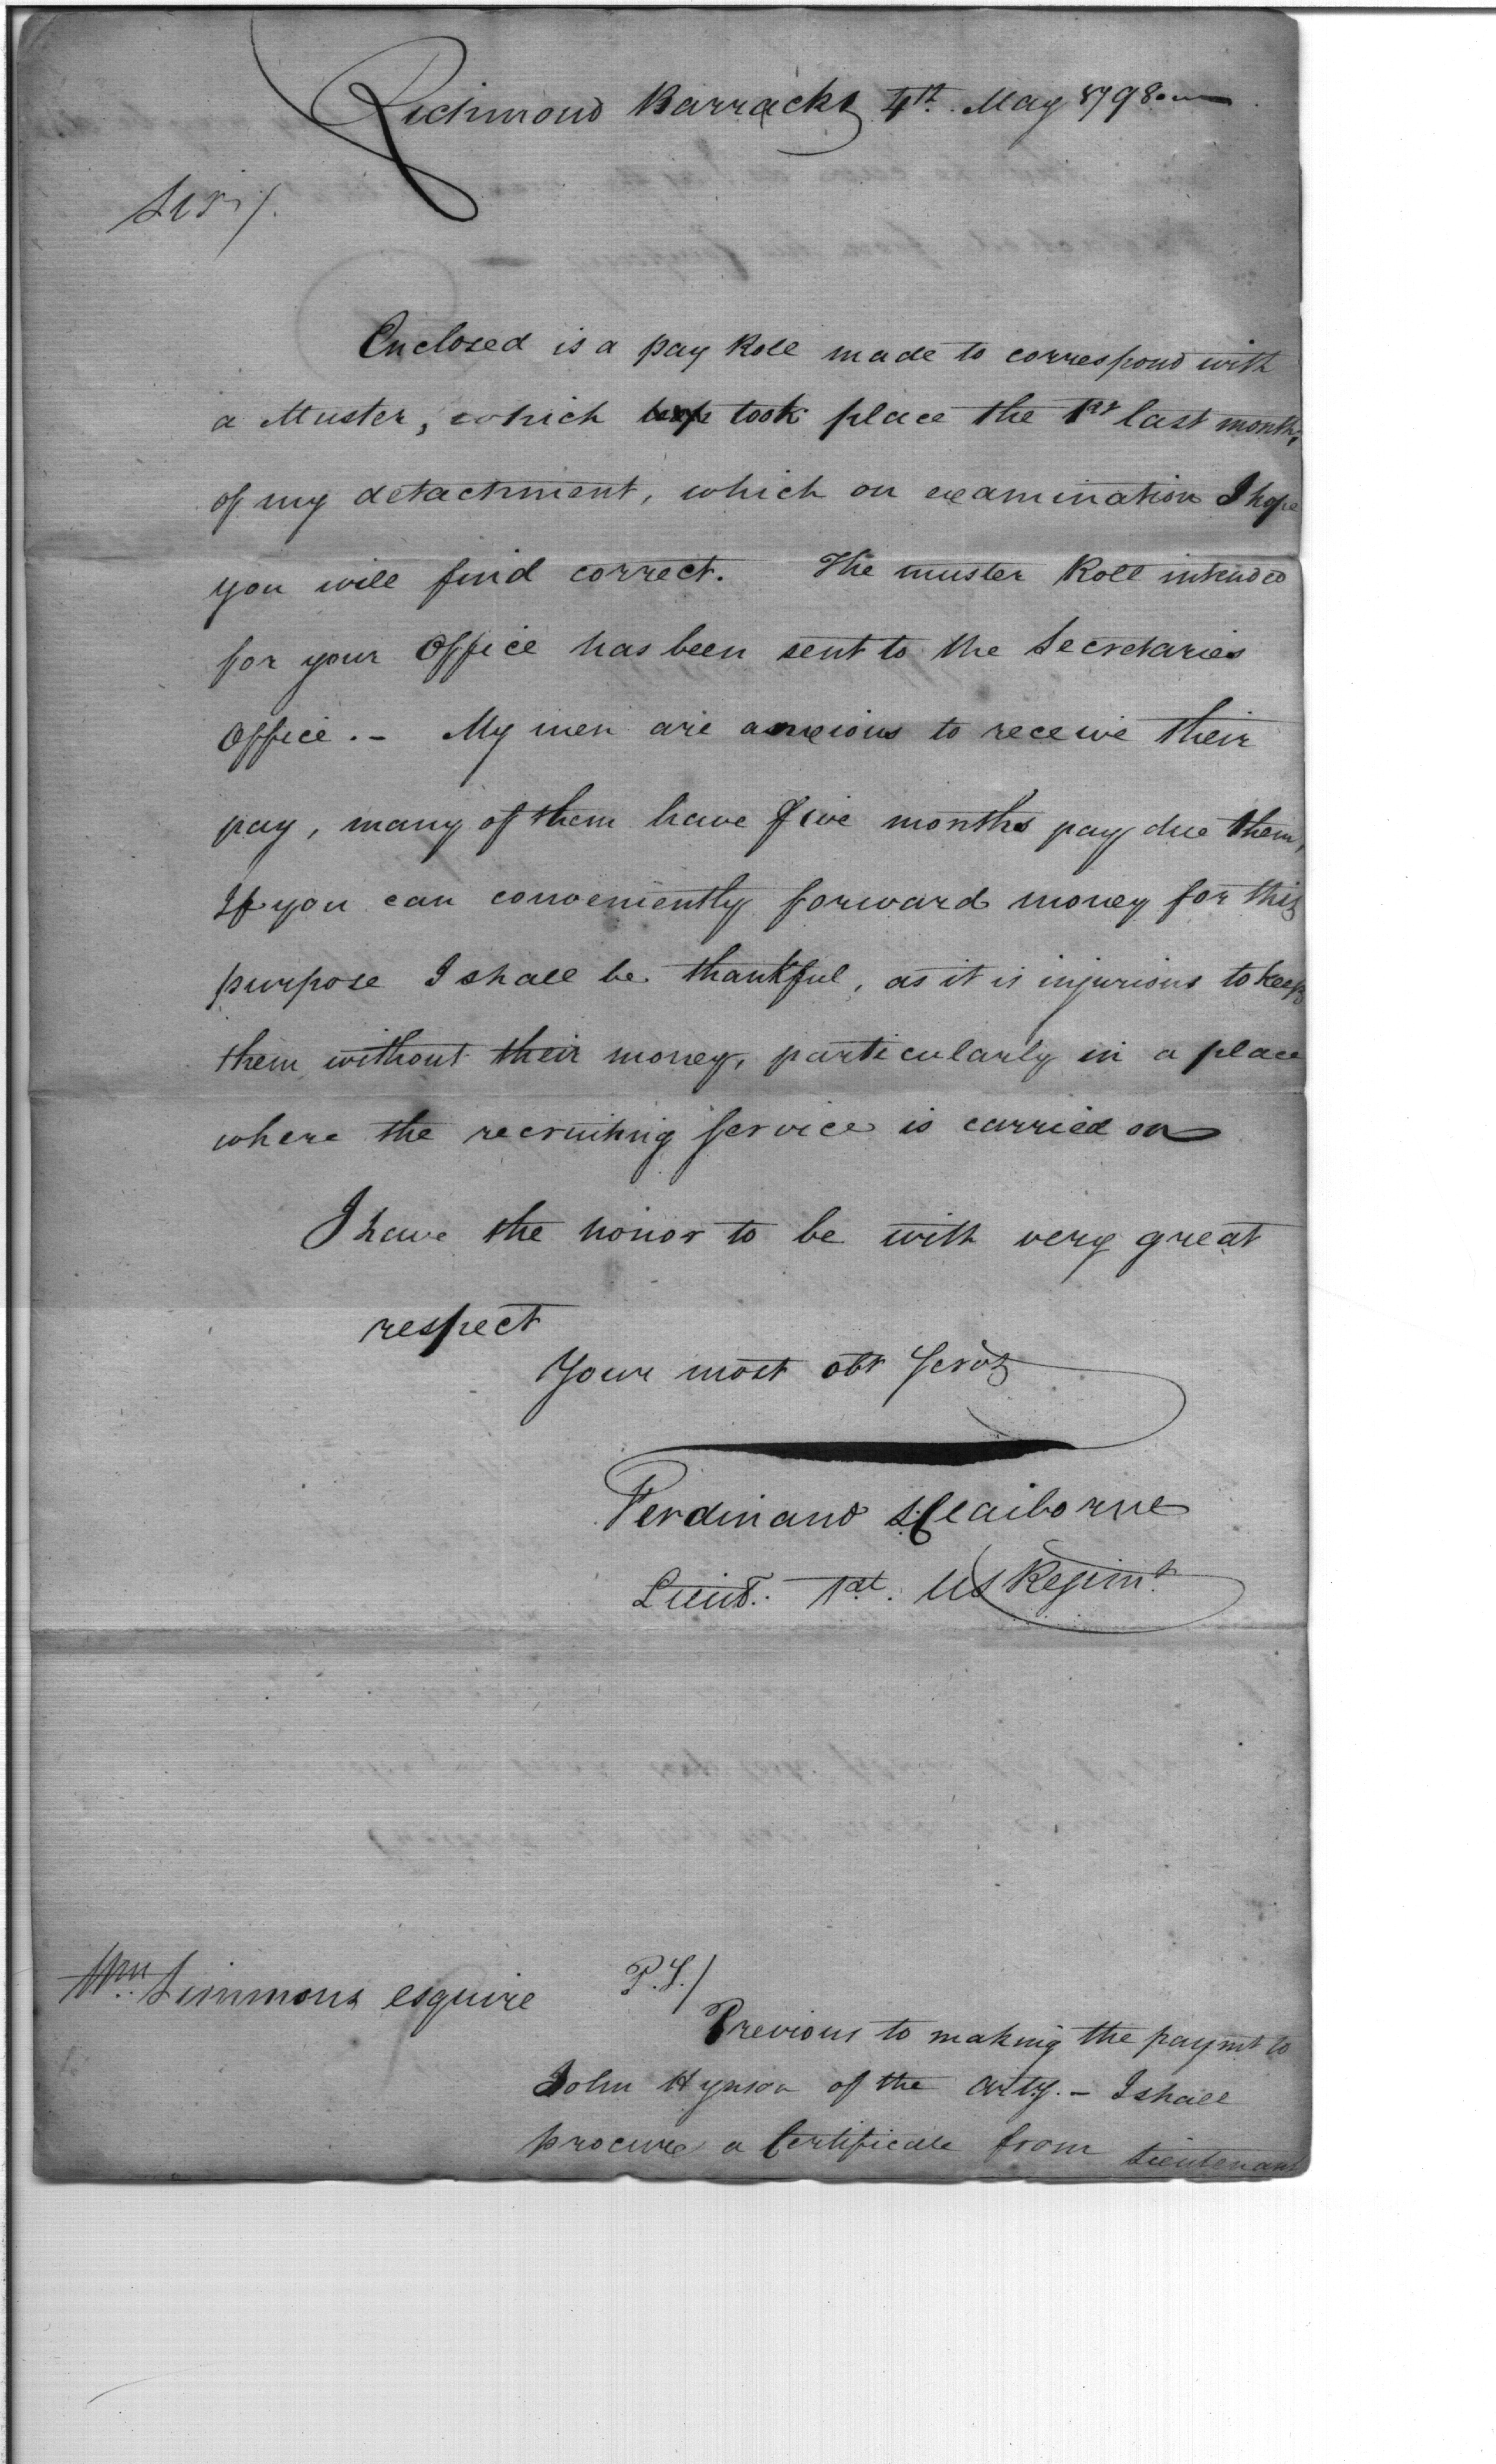 Richmond Barracks 4th. May 1798.
Sir /.
Enclosed is a pay Roll made to correspond with
a Muster, which took place the 1st last month,
of my detachment, which on examination I hope
you will find correct. The muster Roll intended
for your Office has been sent to the Secretaries
Office. - My men are anxious to receive their
pay, many of them have five months pay due them,
If you can conveniently forward money for this
purpose I shall be thankful, as it is injurious to keep
them without their money, particularly in a place
where the recruiting Service is carried on
I have the honor to be with very great
respect
Your most obt Servt
Ferdinand L Claiborne
Lieut. 1st. US Regimt.
Wm. Simmons esquire
P.S./
Previous to making the paymt to
John Hynson of the Arty. - I shall
procure a Certificate from Lieutenant